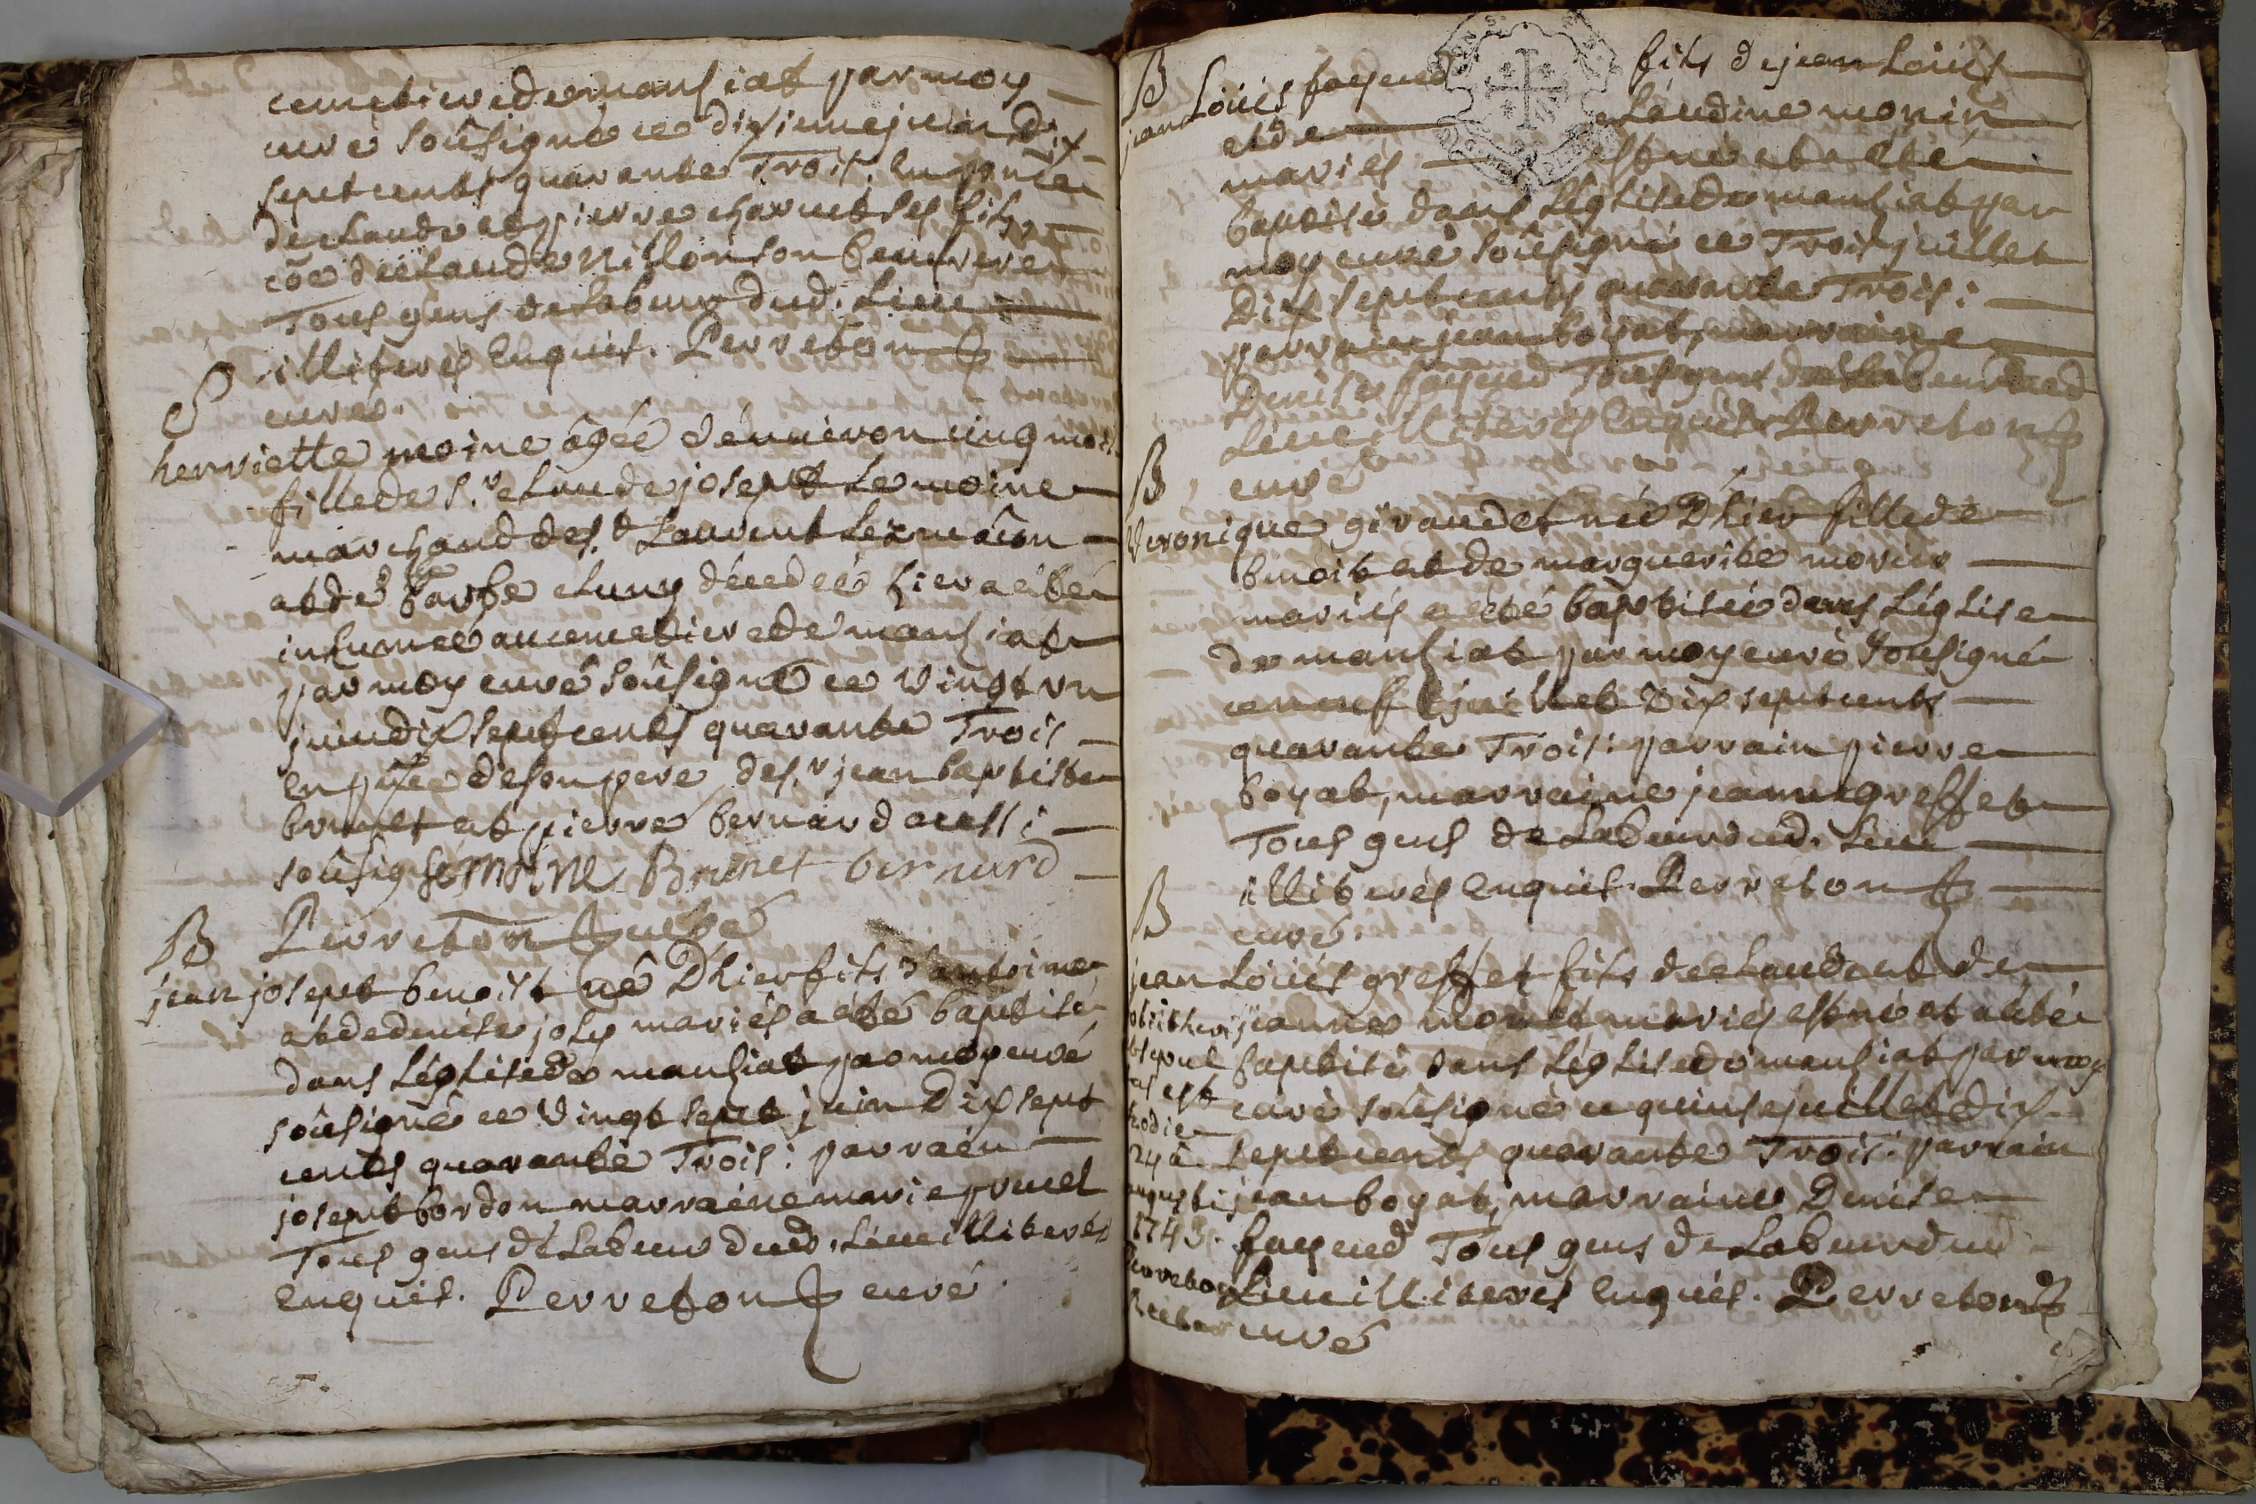 cemetiere de mansiat par moy
curé soûsigné ce dixieme juin Dix
sept cents quarante Trois. En pnce
de claude et pierre charvet ses fits,
cõe de claude Nillon son beaufrere
Tous gens de Labeur dud. Lieu
illiterés Enquis. Perreton
curé.
S
henriette moine âgée d'énuiron cinq mois
fille de S.r claude josept Le moine
marchand de S.t Laurent Lez mâcon
et de Barbe cluny décedée hier a été
inhumée au cemetiere de mansiat
par moy curé soûsigné ce vingt vn
juin dix sept cents quarante Trois
En pñce de son pere de S.r jean baptiste
brunet et pierre bernard aussi
soûsignés moine Brunet bernard
Perreton curé
B
jean josept benoist né D'hier fits d'antoine
et de denise joly mariés a été baptisé
dans Léglise de mansiat par moy curé
soûsigné ce vingt sept juin Dix sept
cents quarante Trois: parraen
josept bordon marraene marie pruel
Tous gens dé Labeur dud. Lieu illiterés
Enquis. Perreton curé.
B
jean Loüis fayend fits de jean Loüis
et de claudine monin
mariés est né et a été
baptisé dans Léglise de mansiat par
moy curé soûsigné ce Trois juillet
Dix sept cents quarante Trois:
parrain jean boyat, marraine
Denise fayend Tous gens de Labeur dud
Lieu illiterés Enquis Perreton
curé
B
Veronique giraudet née D'hier fille de
benoit et de marguerite morier
mariés a été baptisée dans Léglise
de mansiat par moy curé soûsigné
ce neuf juillet Dix sept cents
quarante Trois: parrain pierre
boyat, marraine jeanne greffet
Tous gens de Labeur dud. Lieu
illiterés Enquis. Perreton
curé.
B
jean Loüis greffet fits de claude et de
jeanne monet mariés est né et a été
baptisé dans Léglise de mansiat par moy
curé soûsigné ce quinse juillet dix
sept cents quarante Trois: parrain
jean boyat, marraine Denise
fayend Tous gens de Labeur dud
Lieu illiterés Enqués. Perreton
curé
est
hodie
24 a
augusti
1743.
Perreton